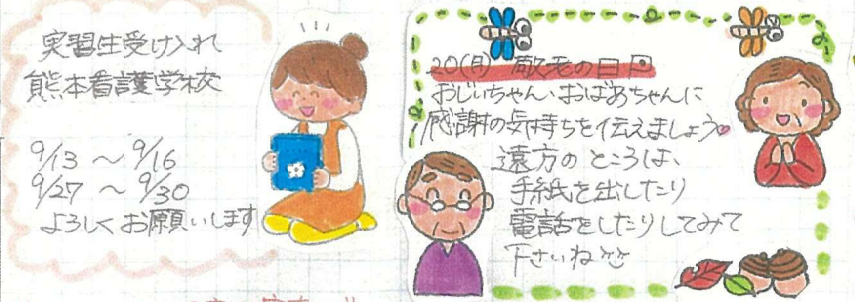 実習生受け入れ
熊本看護学校
9/13 〜 9/16
9/27 〜 9/30
よろしくお願いします
20(月) 敬老の日
おじいちゃん、おばあちゃんに
感謝の気持ちを伝えましょう
遠方のところは、
手紙を出したり
電話をしたりしてみて
下さいね